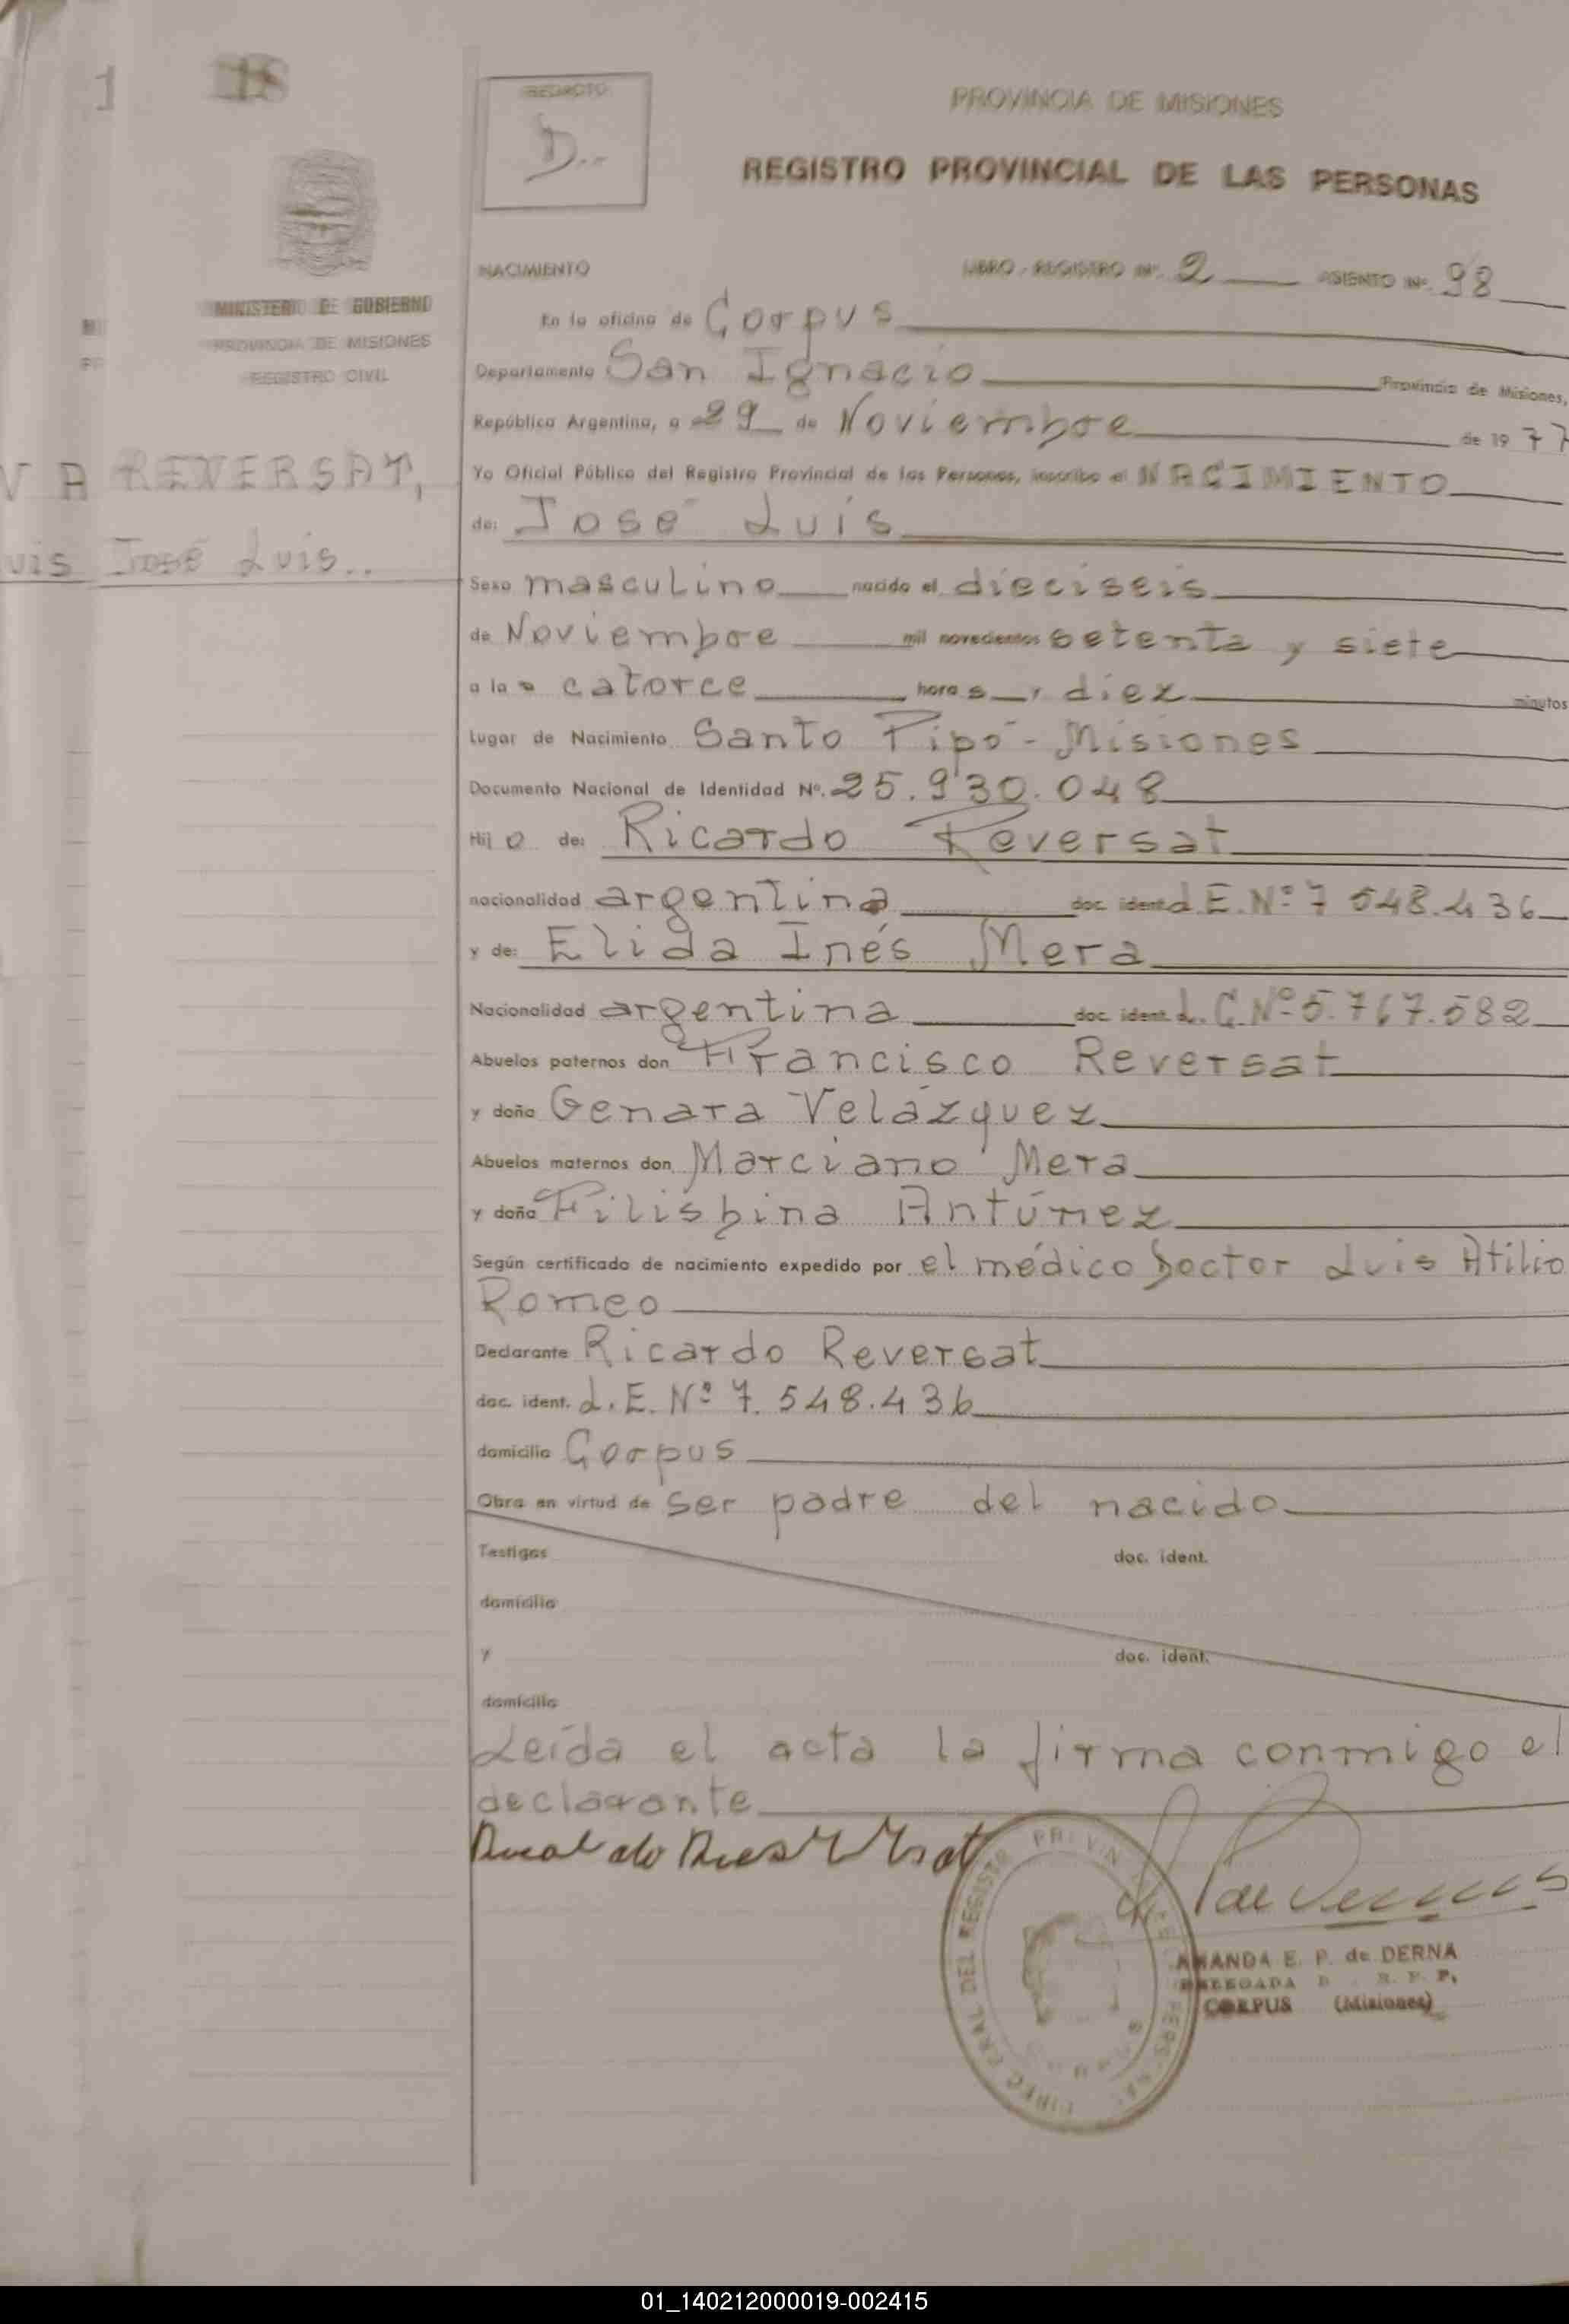 1
18
REDACTO
D..
PROVINCIA DE MISIONES
REGISTRO PROVINCIAL DE LAS PERSONAS
MINISTERIO DE GOBIERNO
PROVINCIA DE MISIONES
REGISTRO CIVIL
REVERSAT,
José Luis..
NACIMIENTO LIBRO - REGISTRO Nº. 2 ASIENTO Nº. 98
En la oficina de Corpus
Departamento San Ignacio Provincia de Misiones,
República Argentina, a 29 de Noviembre de 1977
Yo Oficial Público del Registro Provincial de las Personas, inscribo el NACIMIENTO
de: José Luis
Sexo masculino nacido el dieciseis
de Noviembre mil novecientos setenta y siete
a las catorce horas y diez minutos
Lugar de Nacimiento Santo Pipó - Misiones
Documento Nacional de Identidad Nº. 25.930.048
Hijo de: Ricardo Reversat
nacionalidad argentina doc. ident. L.E. Nº 7 548.436
y de: Elida Inés Mera
Nacionalidad argentina doc. ident. L.C. Nº 5.767.582
Abuelos paternos don Francisco Reversat
y doña Genara Velázquez
Abuelos maternos don Marciano Mera
y doña Filisbina Antúnez
Según certificado de nacimiento expedido por el médico Doctor Luis Atilio
Romeo
Declarante Ricardo Reversat
doc. ident. L.E. Nº 7.548.436
domicilio Corpus
Obra en virtud de ser padre del nacido
Testigos doc. ident.
domicilio
y doc. ident.
domicilio
Leída el acta la firma conmigo el
declarante
AMANDA E. P. de DERNA
DELEGADA R. P. P.
CORPUS (Misiones)
01_140212000019-002415